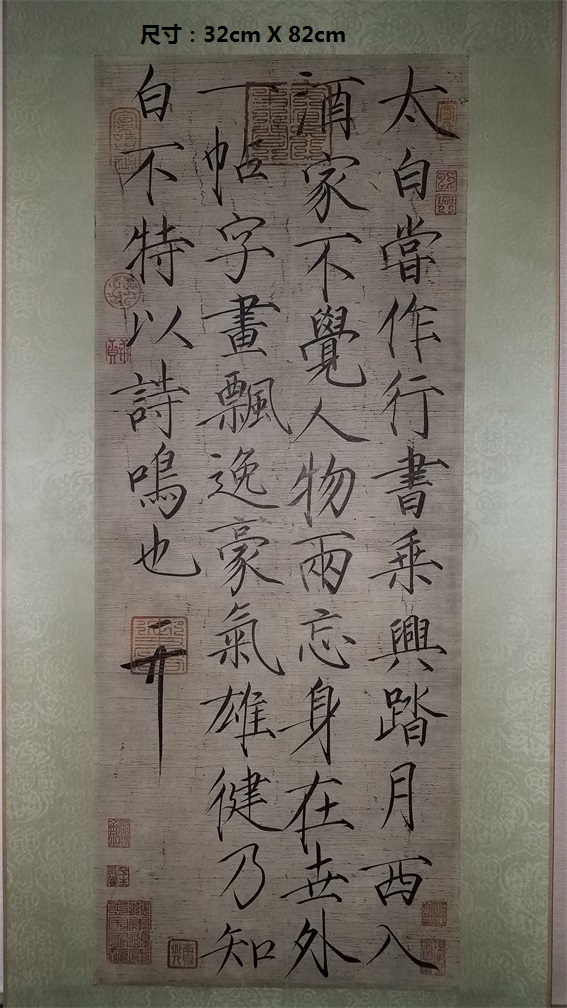 尺寸：32cm X 82cm
太白嘗作行書乘興踏月西入
酒家不覺人物兩忘身在世外
一帖字畫飄逸豪氣雄健乃知
白不特以詩鳴也